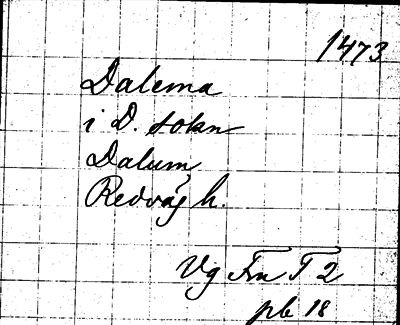 1473
Dalema
i D. sokn
Dalum,
Redväg h.
Vg Fru T 2
pb 18